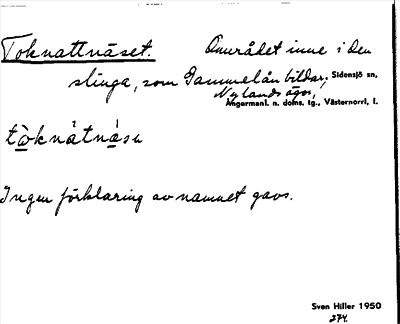 Toknattnäset. Området inne i den
slinga, som Gammelån bildar, Sidensjö sn,
Nylands ägor,
Ångermanl. n. doms. tg., Västernorrl. l.
tò̱knȧtná̱sn
Ingen förklaring av namnet gavs.
Sven Hiller 1950
274.